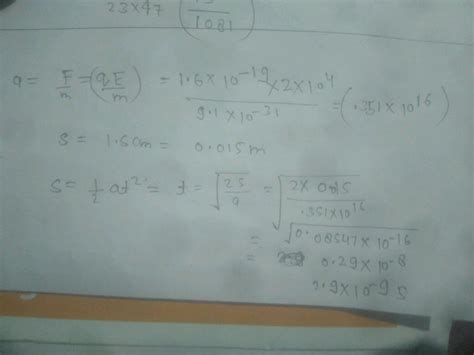 23×47 (13/1081)
a = F/m = (qE/m) = 1.6×10^-19 ×2×10^4 / 9.1×10^-31 = (.351×10^16)
S = 1.5cm = 0.015m
S = 1/2 at^2 = t = √(2S/a) = √(2×0.015 / .351×10^16)
= √(0.08547×10^-16)
= 0.29×10^-8
2.9×10^-9 S